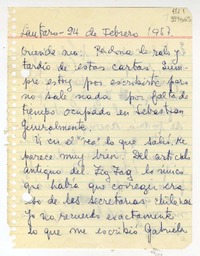 Lautaro - 24 de Febrero 1967
Querida mía: Perdona lo ralo y
tardío de estas cartas. Siem-
pre estoy por escribirte pero
no sale nada por falta de
tiempo ocupado en Sebastián
Generalmente.
Vi en el "Vea" lo que salió. Me
parece muy bien. Del artículo
antiguo del Zig Zag lo único
que había que corregir era
eso de las secretarias chilenas
Yo no recuerdo exactamente
lo que me escribió Gabriela